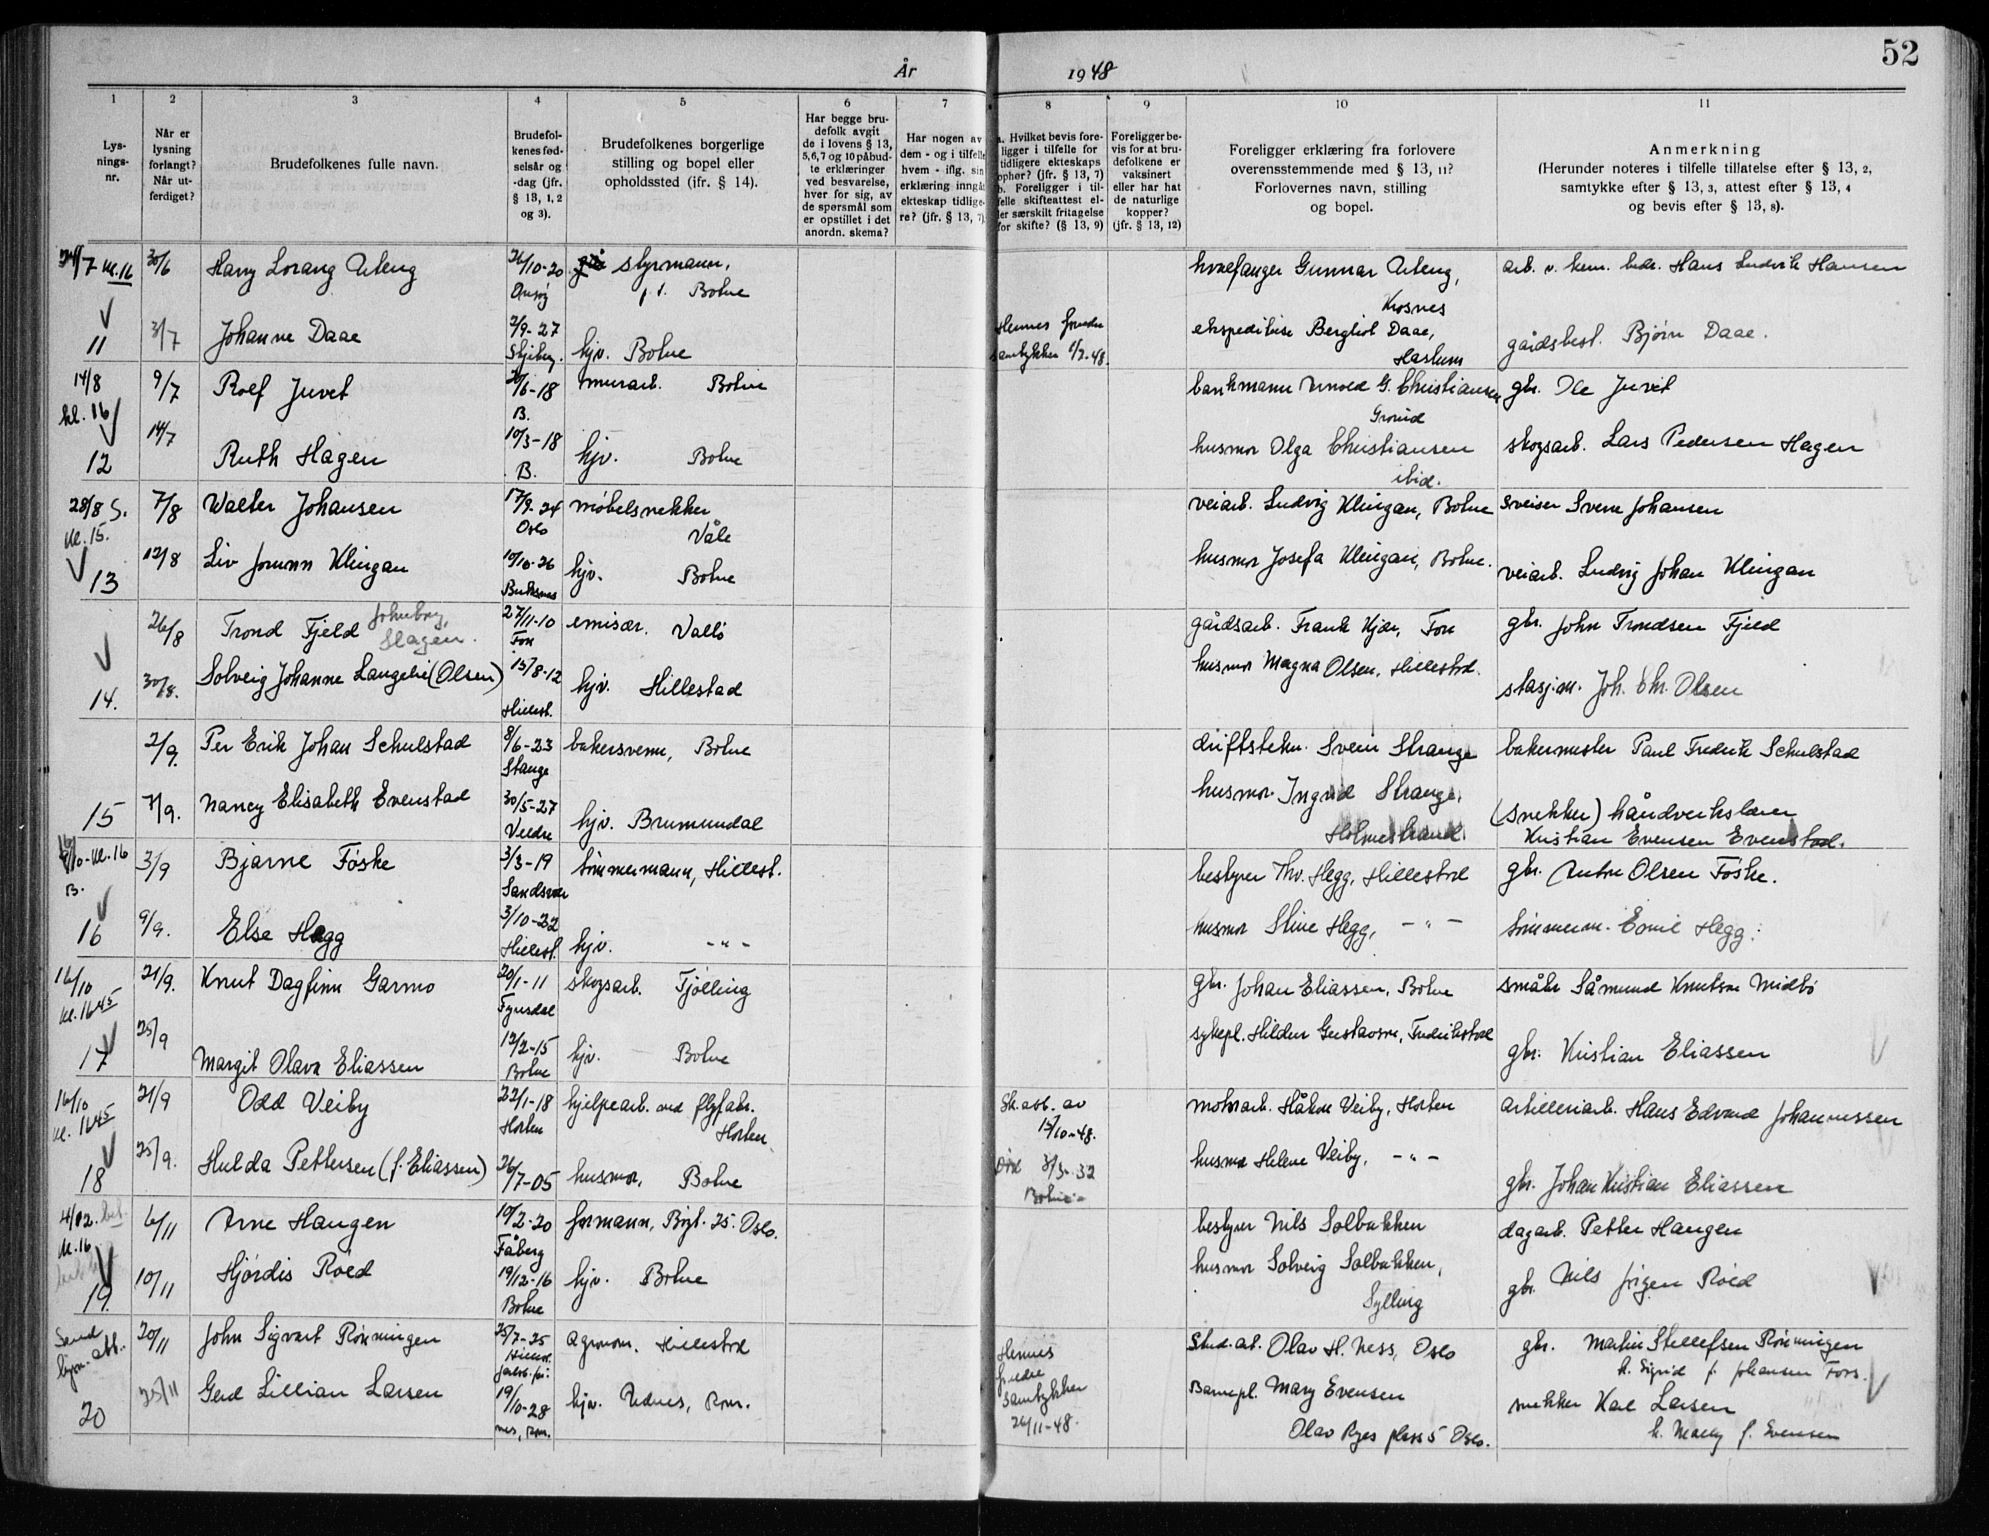 52
År
1948
1
2
3
4
5
6
7
8
9
10
11
Lys-
nings-
nr.
Når er
lysning
forlangt?
Når ut-
ferdiget?
Brudefolkenes fulle navn.
Brudefol-
kenes fød-
selsår og
-dag (jfr.
§ 13, 1, 2
og 3).
Brudefolkenes borgerlige
stilling og bopel eller
opholdssted (ifr. § 14).
Har begge bru-
defolk avgit
de i lovens § 13,
5, 6, 7 og 10 påbud-
te erklæringer
ved besvarelse,
hver for sig, av
de spørsmål som
er opstillet i det
anordn. skema?
Har nogen av
dem - og i tilfelle
hvem - iflg. sin
erklæring inngåt
ekteskap tidlige-
re? (jfr. § 13, 7)
a. Hvilket bevis fore-
ligger i tilfelle for
tidligere ekteskaps
ophør? (jfr. § 13, 7)
b. Foreligger i til-
felle skifteattest el-
ler særskilt fritagelse
for skifte? (§ 13, 9)
Foreligger be-
vis for at bru-
defolkene er
vaksinert
eller har hat
de naturlige
kopper?
(jfr. § 13, 12)
Foreligger erklæring fra forlovere
overensstemmende med § 13, 11?
Forlovernes navn, stilling
og bopel.
Anmerkning
(Herunder noteres i tilfelle tillatelse efter § 13, 2,
samtykke efter § 13, 3, attest efter § 13, 4
og bevis efter § 13, 8).
24/7 kl. 16 30/6 Harry Lorang Uleng 26/10-20 styrmann, hvalfanger Gunnar Uleng, arb. v. kem. bedr. Hans Ludvik Hansen
Onsøy p.t. Botne Krosnes
11 3/7 Johanne Daae 2/9-27 Hennes foreldre ekspeditrise Bergliot Daae, gårdsbest. Bjørn Daae.
Skjeberg. hjv. Botne samtykker 1/7-48. Haslum
14/8 9/7 Rolf Juvet 26/6-18 murarb. Botne bankmann Arnold G. Christiansen gbr. Ole Juvet
kl. 16 B. Grorud
12 14/7 Ruth Hagen 10/3-18 hjv. Botne husmor Olga Christiansen skogsarb. Lars Pedersen Hagen
B. ibid.
28/8 S. 7/8 Walter Johansen 17/9-24 møbelsnekker veiarb. Ludvig Klingan, Botne sveiser Sverre Johansen
kl. 15. Oslo Våle
13 12/8 Liv Jorunn Klingan 10/10-26 hjv. Botne husmor Josefa Klingan, Botne. veiarb. Ludvig Johan Klingan
Buksnes
26/8 Trond Fjeld 27/11-10 emisær. Valløy gårdsarb. Frank Kjær, Fon gbr. John Trondsen Fjeld
Slagen. Fon
14. 30/8. Solveig Johanne Langelie (Olsen) 15/8-12 hjv. Hillestad husmor Magna Olsen, Hillestad. stasj.m. Joh. Chr. Olsen
Hillest.
2/9. Per Erik Johan Schulstad 8/6-23 bakersvenn, Botne driftstekn. Svein Strange bakermester Paul Fredrik Schulstad
Stange
15 7/9. Nancy Elisabeth Evenstad 30/5-27 hjv. Brumunddal husmor Ingrid Strange, (snekker) håndverkslærer
Veldre Holmestrand. Kristian Evensen Evenstad.
9/10-kl. 16 3/9 Bjarne Føske 3/3-19 tømmermann, Hillest. bestyrer Thv. Hegg, Hillestad gbr. Anton Olsen Føske.
B. Sandsvær
16 9/9. Else Hegg 3/10-22 hjv. -"- husmor Stine Hegg, -"- tømmerm. Emil Hegg.
Hillest.
16/10 21/9. Knut Dagfinn Garmo 20/1-11 skogsarb. Tjølling gbr. Johan Eliassen, Botne småbr. Såmund Knutson Midbø
kl. 16 45 Fyresdal
17 25/9 Margit Olava Eliassen 12/2-15 hjv. Botne sykepl. Hildur Gustavsen, Fredrikstad gbr. Kristian Eliassen
Botne
16/10 21/9 Odd Veiby 22/1-18 hjelpearb. ved flyfabr. Sk.att. av motorarb. Håkon Veiby, Horten artilleriarb. Hans Edvard Johannessen
kl. 16 45 Horten Horten 15/10-48.
18 25/9. Hulda Pettersen (f. Eliassen) 26/7-05 husmor, Botne 3/3-32 husmor Helene Veiby, -"- gbr. Johan Kristian Eliassen
Botne
4/12. 6/11 Arne Haugen 10/2-20 formann, Bygt. 25. Oslo. bestyrer Nils Solbakken dagarb. Petter Haugen
kl. 16 Fåberg
19. 10/11 Hjørdis Røed 19/12-16 hjv. Botne husmor Solveig Solbakken, gbr. Nils Jørgen Røed
Botne Sylling
Send 20/11 John Sigvart Rønningen 25/7-25 agronom. Hillestad Hennes Stud.art. Olav H. Ness, Oslo gbr. Martin Stillefsen Rønningen
att. Hillest. foreldre h. Sigrid f. Johansen Foss.
20 25/11 Gerd Lillian Larsen 19/10-28 hjv. Udnes, Rom. samtykker Barnepl. Mary Evensen snekker Karl Larsen
nes, Rom. 26/11-48. Olav Ryes plass 5 Oslo. h. Mally f. Evensen